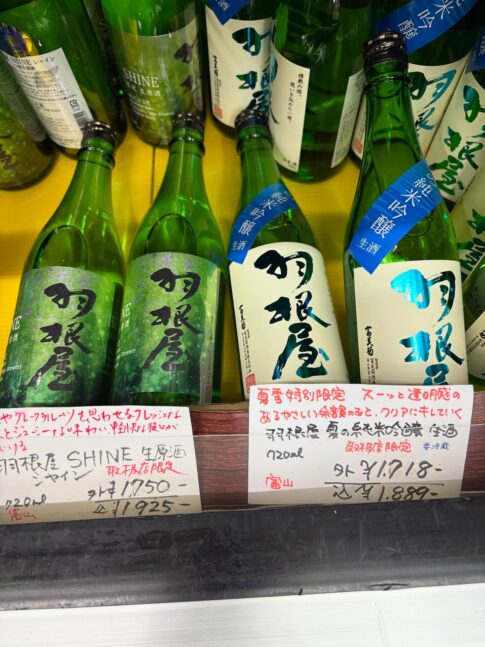 SHINE
シャイン
SHINE
生原酒
純米吟醸
羽根屋
羽根屋
純米吟醸
羽根屋
羽根屋
羽根屋
羽根屋
純米吟醸
生酒
羽根屋
富美菊
純米吟醸
生酒
羽根屋
富美菊
やグレープフルーツを思わせるフレッシュな
羽根屋 SHINE 生原酒
シャイン 取扱店限定
720ml
外¥1,750-
富山
¥1,925-
夏季特別限定 スーッと透明感の
あるやさしい余韻のあと、クリアにキレていく
羽根屋 夏の純米吟醸 生酒
取扱店限定 要冷蔵
720ml
外¥1,718-
富山
込¥1,889-